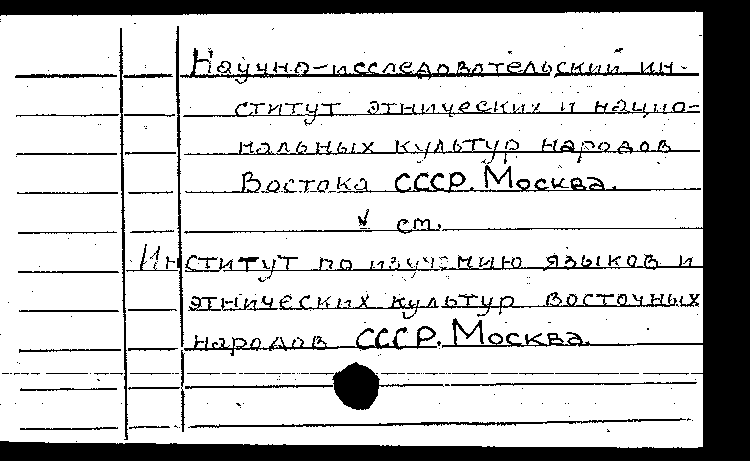 Научно-исследовательский ин-
ститут этнических и нацио-
нальных культур народов
Востока СССР. Москва.
см.
Институт по изучению языков и
этнических культур восточных
народов СССР. Москва.